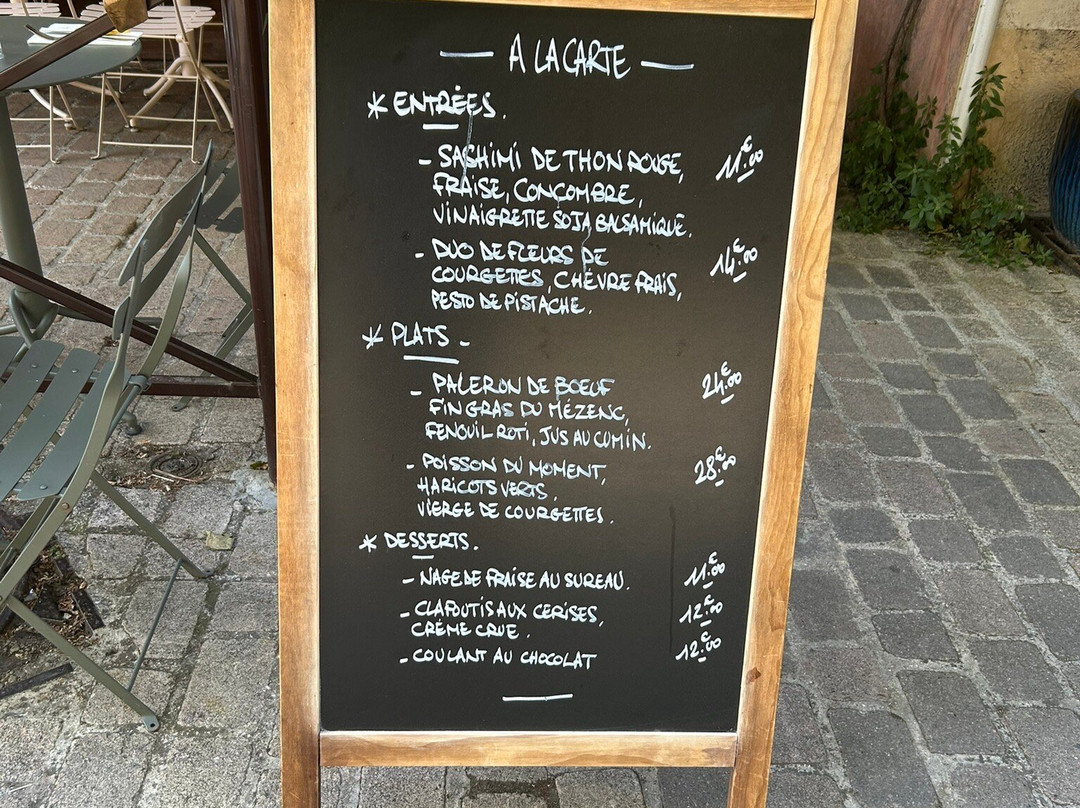 A LA CARTE
* ENTRÉES.
- SASHIMI DE THON ROUGE, 11.€00
FRAISE, CONCOMBRE,
VINAIGRETTE SOJA BALSAMIQUE.
- DUO DE FLEURS DE 14.€00
COURGETTES, CHÈVRE FRAIS,
PESTO DE PISTACHE.
* PLATS -
- PALERON DE BOEUF 24.€00
FIN GRAS DU MÉZENC,
FENOUIL ROTI, JUS AU CUMIN.
- POISSON DU MOMENT, 28.€00
HARICOTS VERTS,
VIERGE DE COURGETTES.
* DESSERTS.
- NAGE DE FRAISE AU SUREAU. 11.€00
- CLAFOUTIS AUX CERISES, 12.€00
CRÈME CRUE.
- COULANT AU CHOCOLAT 12.€00